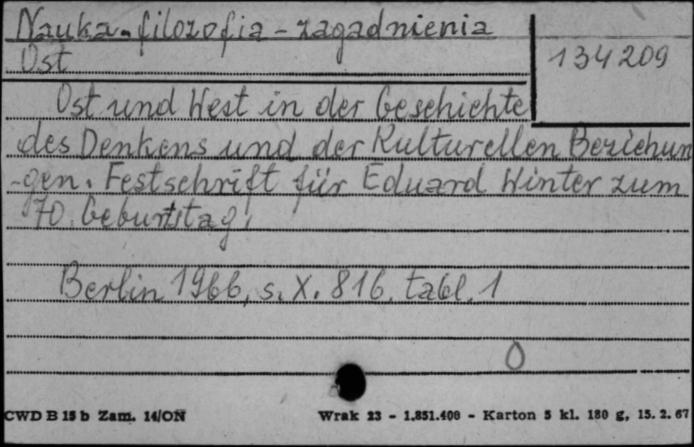 Nauka - filozofia - zagadnienia
Ost
134209
Ost und West in der Geschichte
des Denkens und der Kulturellen Beziehun
-gen. Festschrift für Eduard Winter zum
70. Geburtstag.
Berlin 1966, s. X. 816, tabl. 1
O
CWD B 15 b Zam. 14/ON
Wrak 23 - 1.851.400 - Karton 5 kl. 180 g, 15. 2. 67